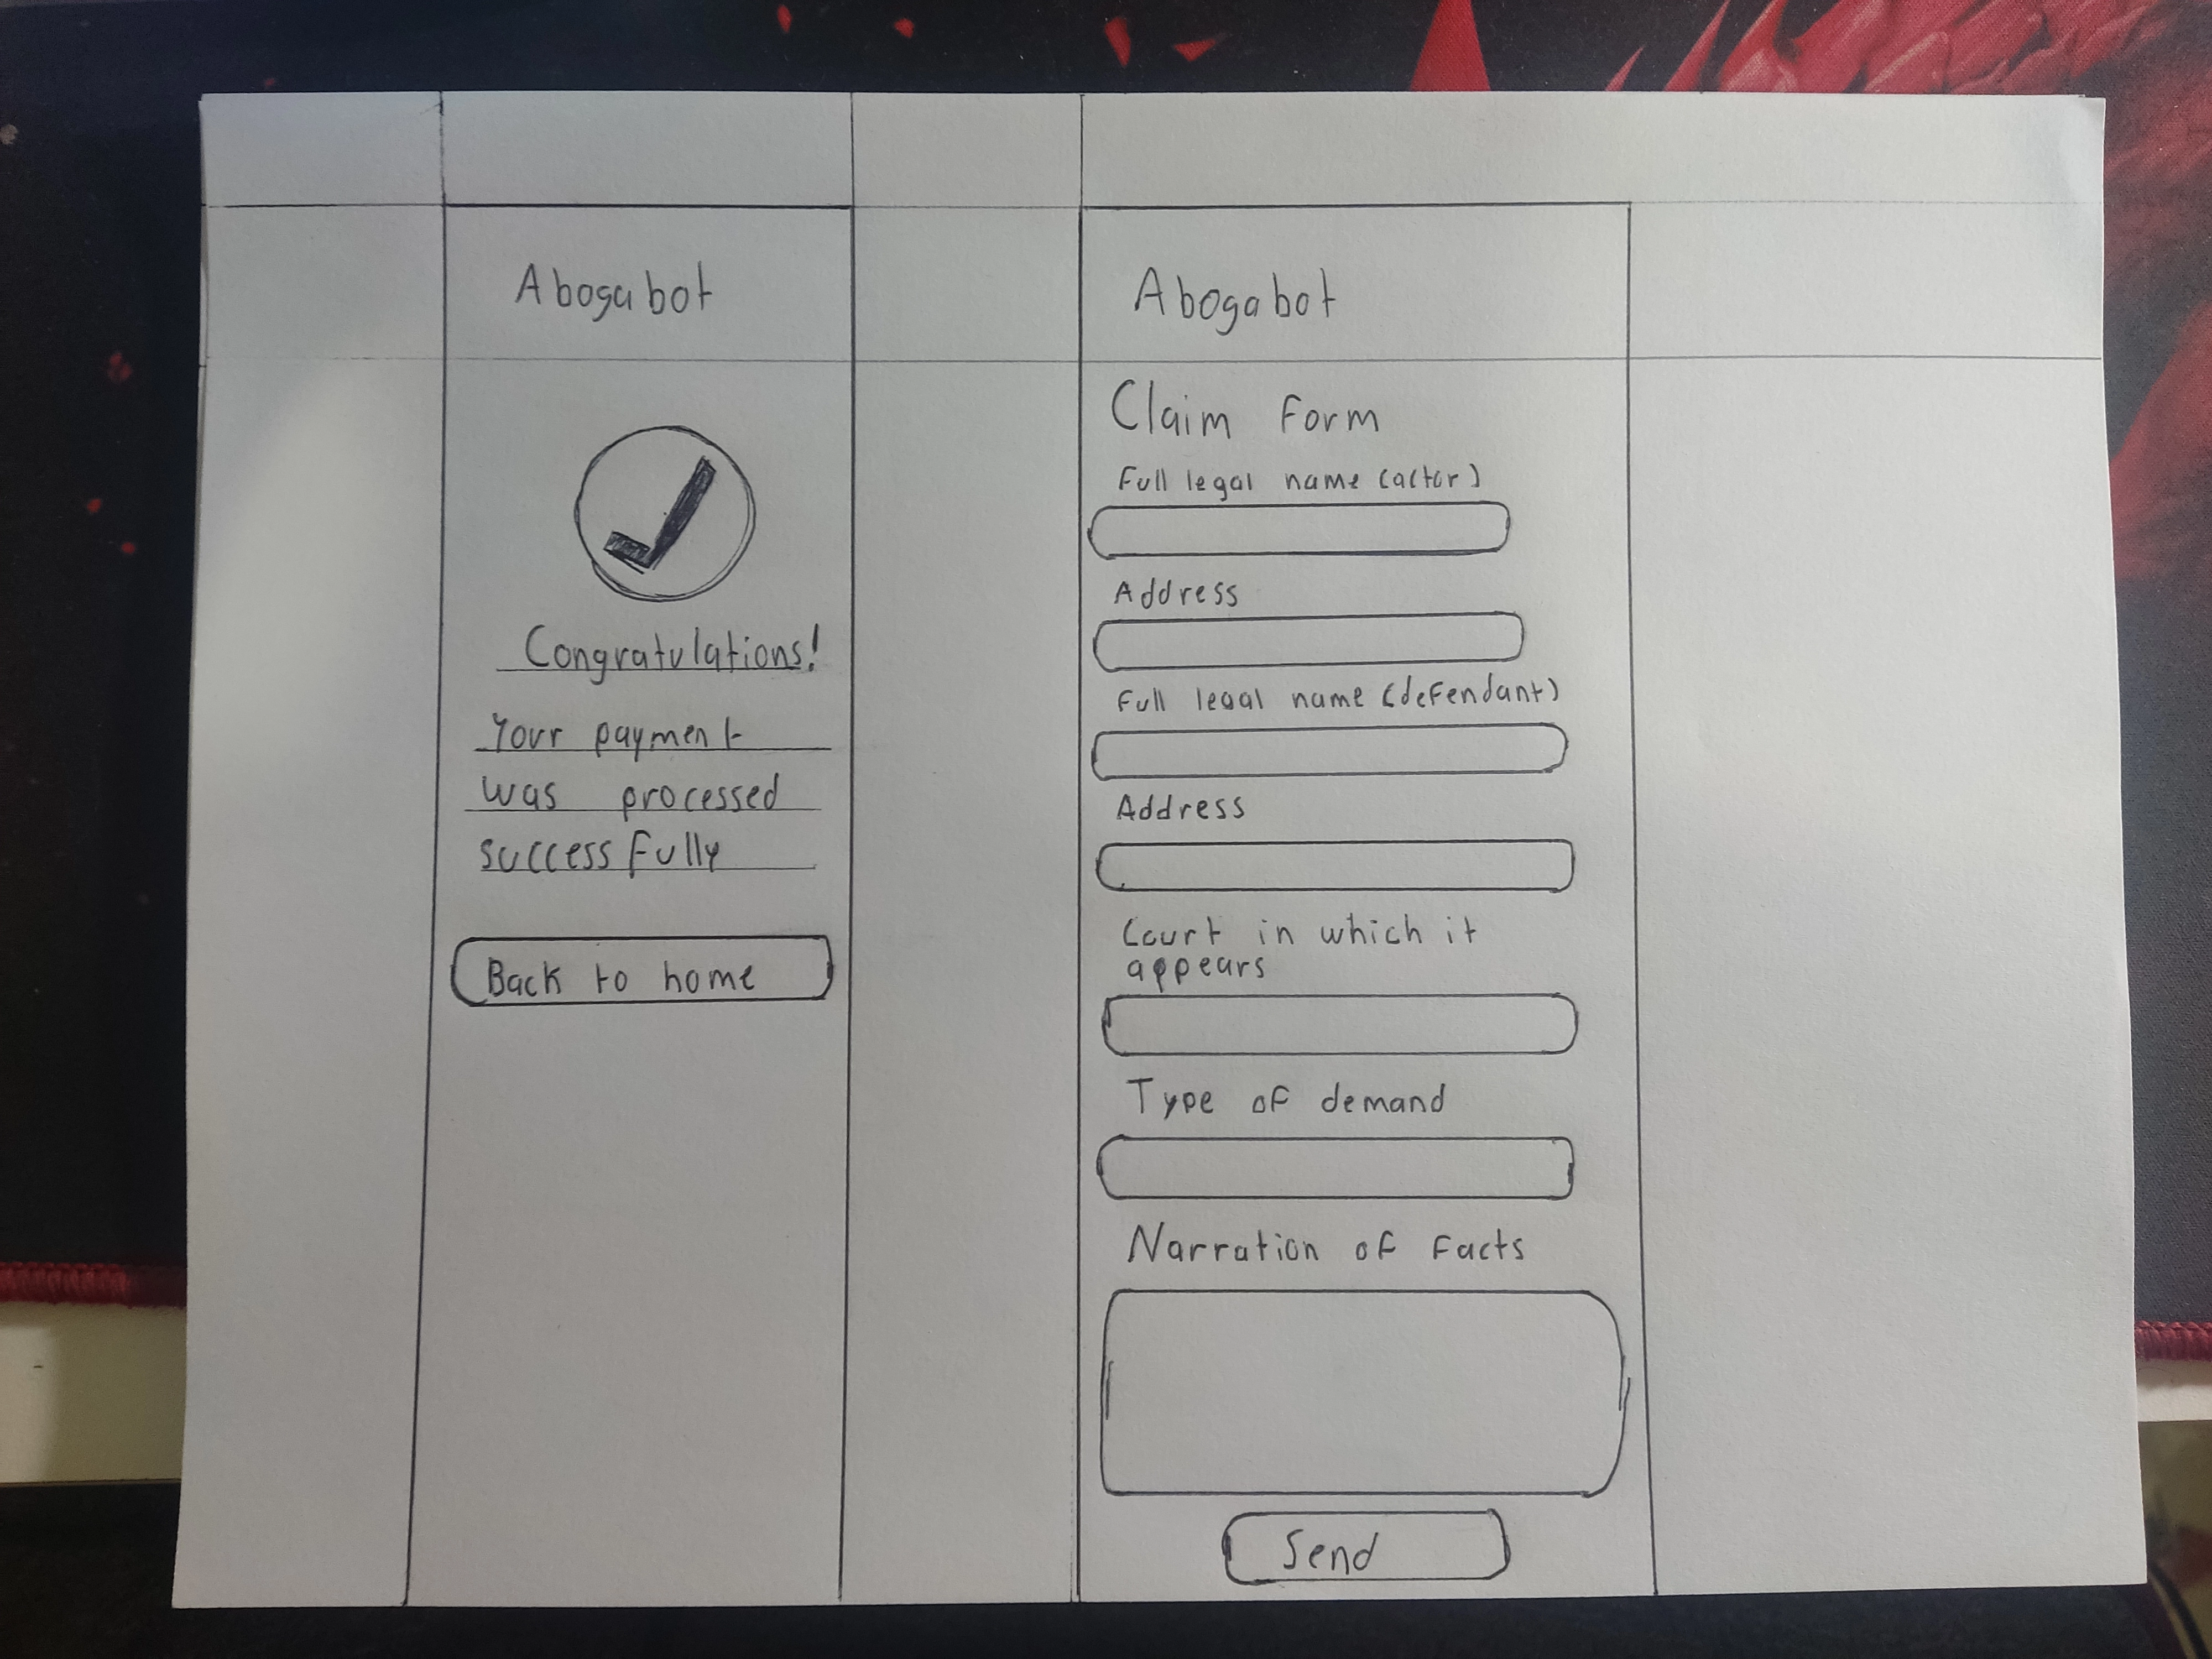 Abogabot
Congratulations!
Your payment
was processed
successfully
Back to home
Abogabot
Claim Form
Full legal name (actor)
Address
Full legal name (defendant)
Address
Court in which it
appears
Type of demand
Narration of Facts
Send